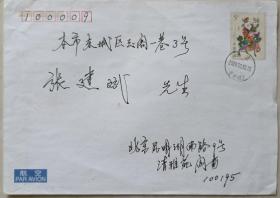 100009
本市东城区
巷3号
张建斌 先生
北京昆明湖南路9号
清雅苑
100195
航空
PAR AVION